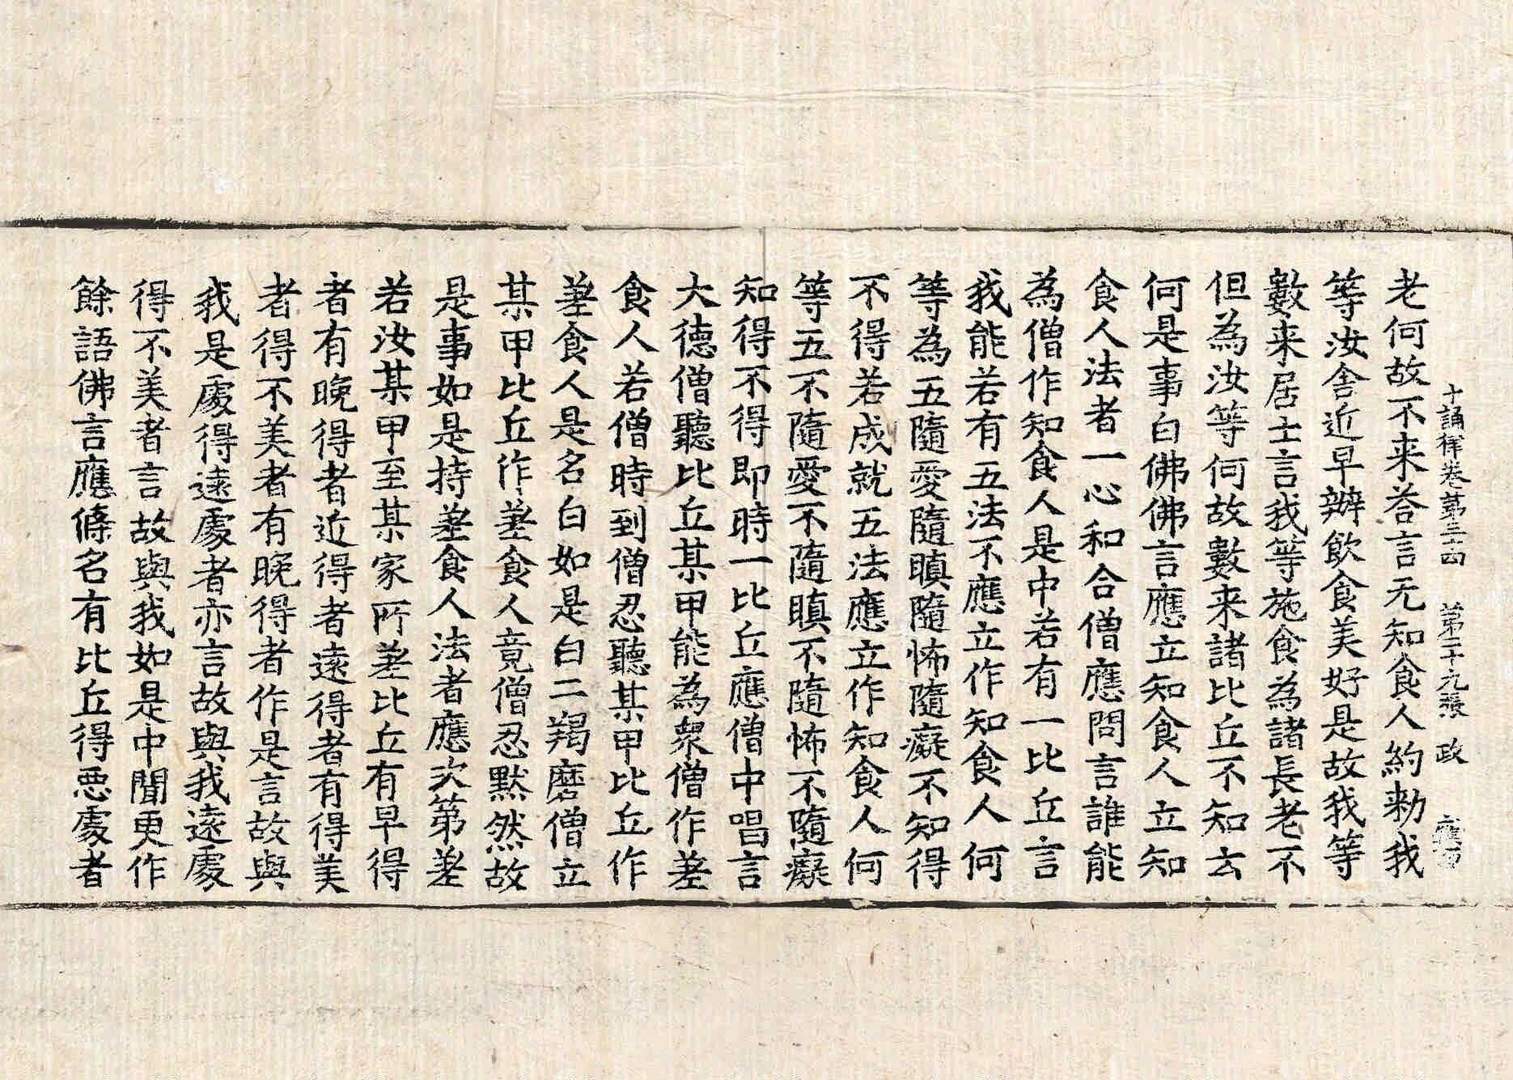 十誦律卷第三十四 第二十九張 政
老何故不来荅言无知食人約勑我
等汝舍近早辦飲食美好是故我等
數来居士言我等施食為諸長老不
但為汝等何故數来諸比丘不知云
何是事白佛佛言應立知食人立知
食人法者一心和合僧應問言誰能
為僧作知食人是中若有一比丘言
我能若有五法不應立作知食人何
等為五隨愛隨瞋隨怖隨癡不知得
不得若成就五法應立作知食人何
等五不隨愛不隨瞋不隨怖不隨癡
知得不得即時一比丘應僧中唱言
大德僧聽比丘某甲能為衆僧作差
食人若僧時到僧忍聽某甲比丘作
差食人是名白如是白二羯磨僧立
某甲比丘作差食人竟僧忍黙然故
是事如是持差食人法者應次第差
若汝某甲至某家所差比丘有早得
者有晚得者近得者遠得者有得美
者得不美者有晚得者作是言故與
我是處得遠處者亦言故與我遠處
得不美者言故與我如是中聞更作
餘語佛言應條名有比丘得惡處者